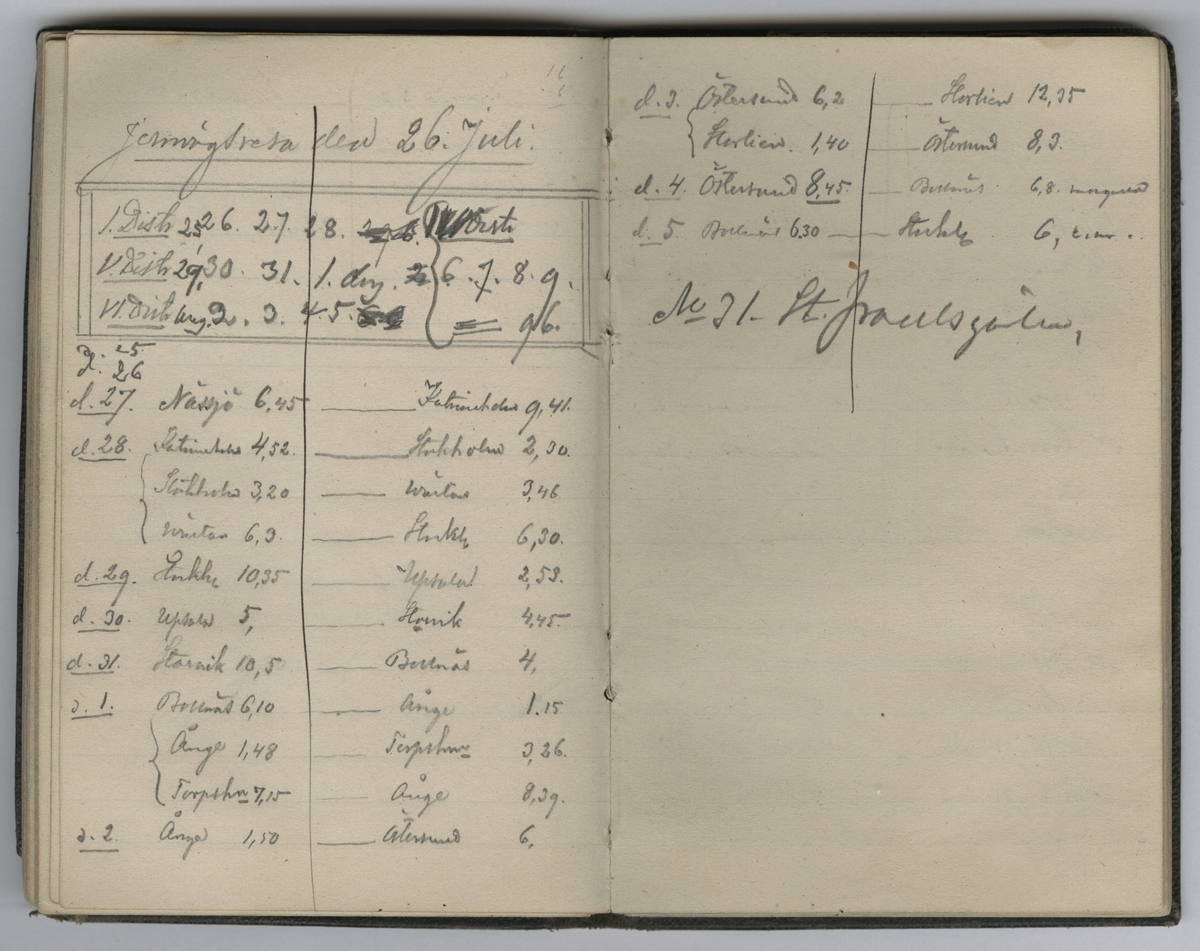 Jernvägsresa den 26. Juli.
I. Distr 25 26. 27. 28.
V. Distr 29, 30. 31. 1. Aug. 2 6. 7. 8. 9.
VI. Distr Aug. 2. 3. 4. 5. 96.
d. 25
d. 26
d. 27. Nässjö 6,45 — Katrineholm 9,41.
d. 28. Katrineholm 4,52. — Stokholm 2,30.
Stokholm 3,20 — Wärtan 3,46
Wärtan 6,3. — Stokh 6,30.
d. 29. Stokh 10,35 — Upsala 2,53.
d. 30. Upsala 5, — Storvik 4,45.
d. 31. Storvik 10,5 — Bollnäs 4,
d. 1. Bollnäs 6,10 — Ånge 1.15
Ånge 1,48 — Torpshm 3,26.
Torpshm 7,15 — Ånge 8,39.
d. 2. Ånge 1,50 — Östersund 6,
d. 3. Östersund 6,2 — Storlien 12,35
Storlien. 1,40 — Östersund 8,3.
d. 4. Östersund 8,45. — Bollnäs 6,8. morgonen
d. 5 Bollnäs 6,30 — Stokh 6,
No 31. St.